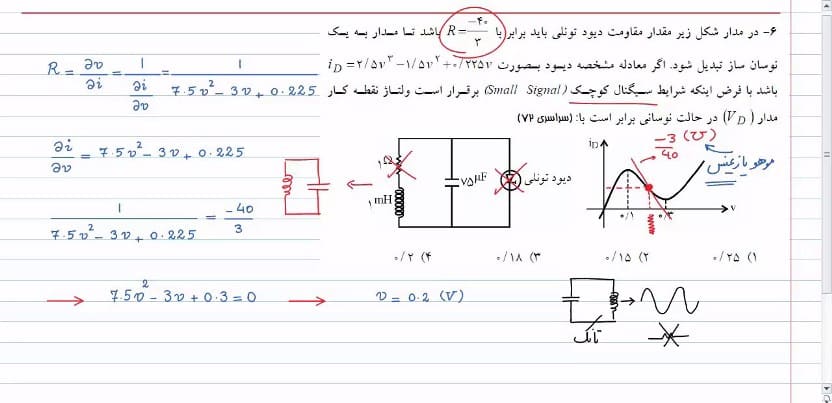 ۶- در مدار شکل زیر مقدار مقاومت دیود تونلی باید برابر با R = -۴۰/۳ باشد تا مدار به یک
نوسان ساز تبدیل شود. اگر معادله مشخصه دیود بصورت i_D = ۲/۵v^۳ - ۱/۵v^۲ + ۰/۲۲۵v
باشد با فرض اینکه شرایط سیگنال کوچک (Small Signal) برقرار است ولتاژ نقطه کار
مدار (V_D) در حالت نوسانی برابر است با: (سراسری ۷۲)
R = ∂v/∂i = 1/(∂i/∂v) = 1/(7.5v^2 - 3v + 0.225)
∂i/∂v = 7.5v^2 - 3v + 0.225
1/(7.5v^2 - 3v + 0.225) = -40/3
۱Ω
۱mH
۷۵μF
دیود تونلی
i_D
-3/40 (℧)
۰/۱
۰/۳
v
۱) ۰/۲۵
۲) ۰/۱۵
۳) ۰/۱۸
۴) ۰/۲
→ 7.5v^2 - 3v + 0.3 = 0 → v = 0.2 (V)
تانک